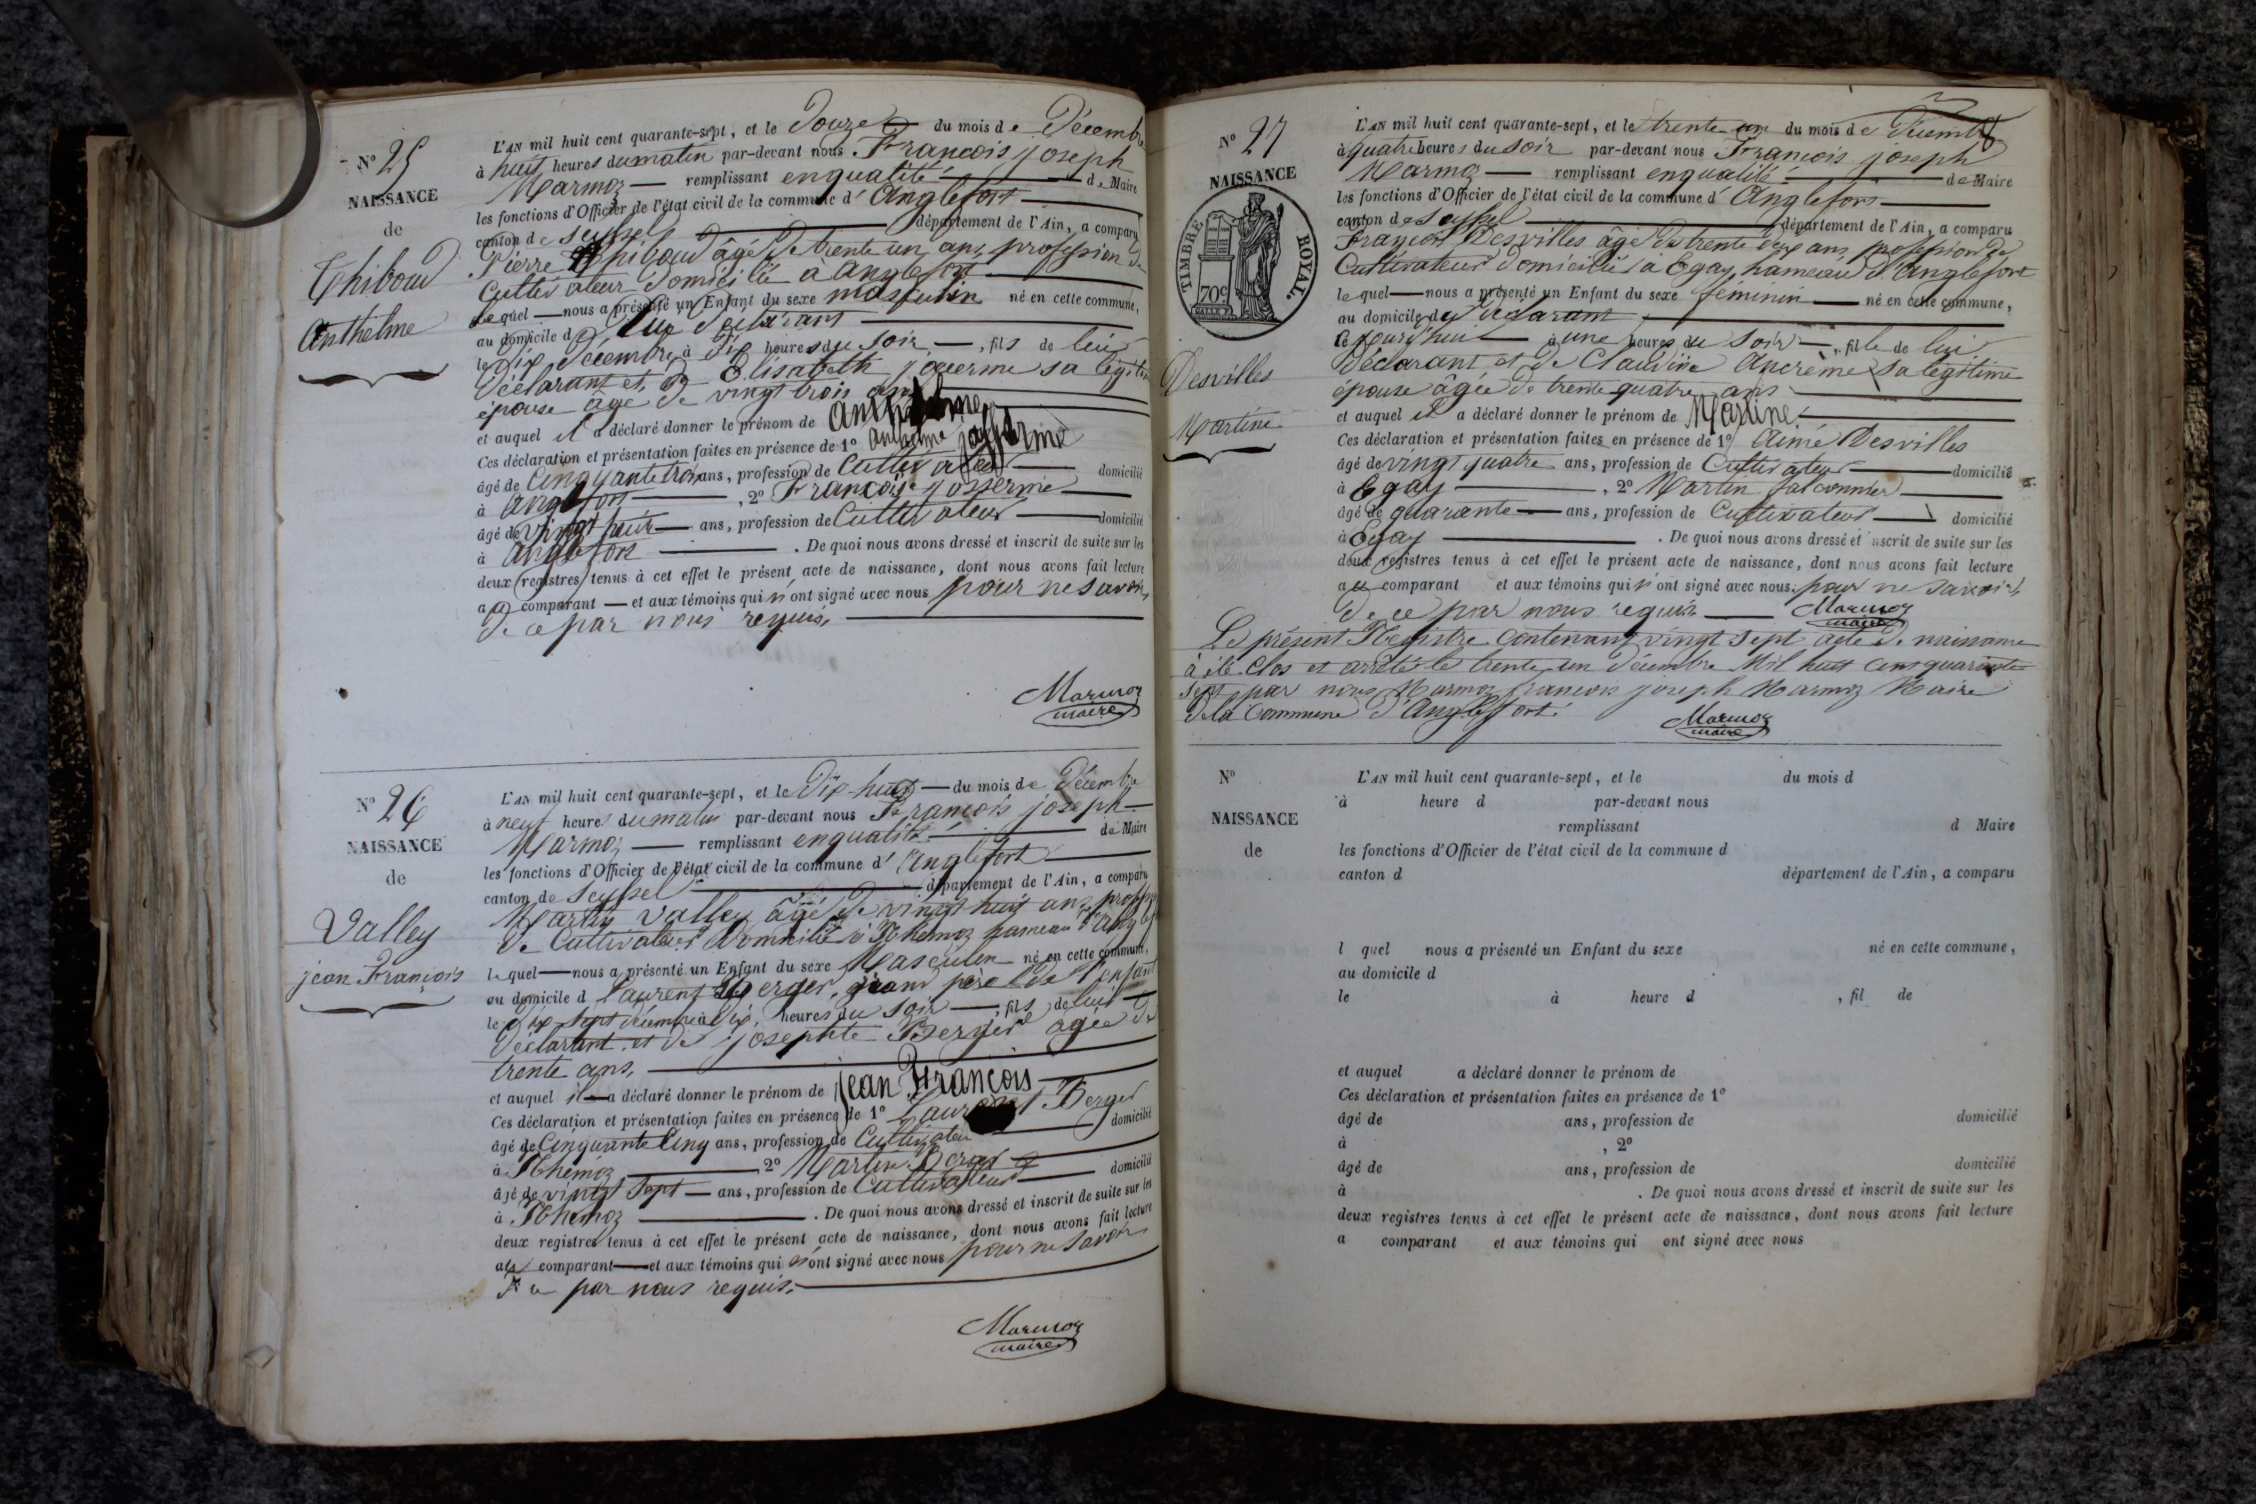 N° 25
NAISSANCE
de
Thiboud
Anthelme
L'AN mil huit cent quarante-sept, et le Douze du mois de Décembre
à huit heures du matin par-devant nous François joseph
Marmoz remplissant en qualité de Maire
les fonctions d'Officier de l'état civil de la commune d'Anglefort
canton de Seyssel département de l'Ain, a comparu
Pierre Thiboud âgé de trente un ans, profession de
Cultivateur Domicilié à Anglefort
lequel nous a présenté un Enfant du sexe masculin né en cette commune,
au domicile de lui Déclarant
le dix Décembre, à Dix heures du soir, fils de lui
Déclarant et de Elisabeth josserme sa légitime
épouse âgée de vingt trois ans
et auquel il a déclaré donner le prénom de Anthelme
Ces déclaration et présentation faites en présence de 1° Anthelme josserme
âgé de Cinquante trois ans, profession de Cultivateur domicilié
à Anglefort, 2° François josserme
âgé de vingt huit ans, profession de Cultivateur domicilié
à Anglefort. De quoi nous avons dressé et inscrit de suite sur les
deux registres tenus à cet effet le présent acte de naissance, dont nous avons fait lecture
au comparant et aux témoins qui n'ont signé avec nous pour ne savoir,
de ce par nous requis.
Marmoz
maire
N° 26
NAISSANCE
de
Valley
jean François
L'AN mil huit cent quarante-sept, et le Dix-huit du mois de Décembre
à neuf heures du matin par-devant nous François joseph
Marmoz remplissant en qualité de Maire
les fonctions d'Officier de l'état civil de la commune d'Anglefort
canton de Seyssel département de l'Ain, a comparu
Martin Valley âgé de vingt huit ans, profession
de Cultivateur Domicilié à Rhemoz hameau d'Anglefort
lequel nous a présenté un Enfant du sexe Masculin né en cette commune,
au domicile d laurent Berger, grand père de l'enfant
le dix sept décembre à dix, heures du soir, fils de lui
Déclarant et de josephte Berger âgée de
trente ans,
et auquel il a déclaré donner le prénom de jean François
Ces déclaration et présentation faites en présence de 1° Laurent Berger
âgé de Cinquante Cinq ans, profession de Cultivateur domicilié
à Rhémoz 2° Martin
âgé de vingt sept ans, profession de Cultivateur domicilié
à Rhemoz. De quoi nous avons dressé et inscrit de suite sur les
deux registres tenus à cet effet le présent acte de naissance, dont nous avons fait lecture
au comparant et aux témoins qui n'ont signé avec nous pour ne savoir
de ce par nous requis.
Marmoz
maire
N° 27
NAISSANCE
TIMBRE ROYAL.
70c
Desvilles
Martine
L'AN mil huit cent quarante-sept, et le trente un du mois de Décembre
à quatre heures du soir par-devant nous François joseph
Marmoz remplissant en qualité de Maire
les fonctions d'Officier de l'état civil de la commune d'Anglefort
canton de Seyssel département de l'Ain, a comparu
François Desvilles âgé de trente deux ans, profession de
Cultivateur domicilié à Egay, hameau d'Anglefort
lequel nous a présenté un Enfant du sexe féminin né en cette commune,
au domicile du Déclarant
ce jourd'hui à une heures du soir, fille de lui
Déclarant et de Claudine Ancrème sa légitime
épouse âgée de trente quatre ans
et auquel il a déclaré donner le prénom de Martine
Ces déclaration et présentation faites en présence de 1° Aimé Desvilles
âgé de vingt quatre ans, profession de Cultivateur domicilié
à Egay, 2° Martin falconnier
âgé de quarante ans, profession de Cultivateur domicilié
à Egay. De quoi nous avons dressé et inscrit de suite sur les
deux registres tenus à cet effet le présent acte de naissance, dont nous avons fait lecture
au comparant et aux témoins qui n'ont signé avec nous, pour ne savoir
de ce par nous requis Marmoz
maire
Le présent Registre contenant vingt sept acte de naissance
à été Clos et arrêté le trente un Décembre Mil huit Cent quarante
sept par nous Marmoz françois joseph Marmoz Maire
de la Commune d'Anglefort.
Marmoz
maire
N°
NAISSANCE
de
L'AN mil huit cent quarante-sept, et le du mois d
à heure d par-devant nous
remplissant d Maire
les fonctions d'Officier de l'état civil de la commune d
canton d département de l'Ain, a comparu
l quel nous a présenté un Enfant du sexe né en cette commune,
au domicile d
le à heure d, fil de
et auquel a déclaré donner le prénom de
Ces déclaration et présentation faites en présence de 1°
âgé de ans, profession de domicilié
à, 2°
âgé de ans, profession de domicilié
à. De quoi nous avons dressé et inscrit de suite sur les
deux registres tenus à cet effet le présent acte de naissance, dont nous avons fait lecture
a comparant et aux témoins qui ont signé avec nous